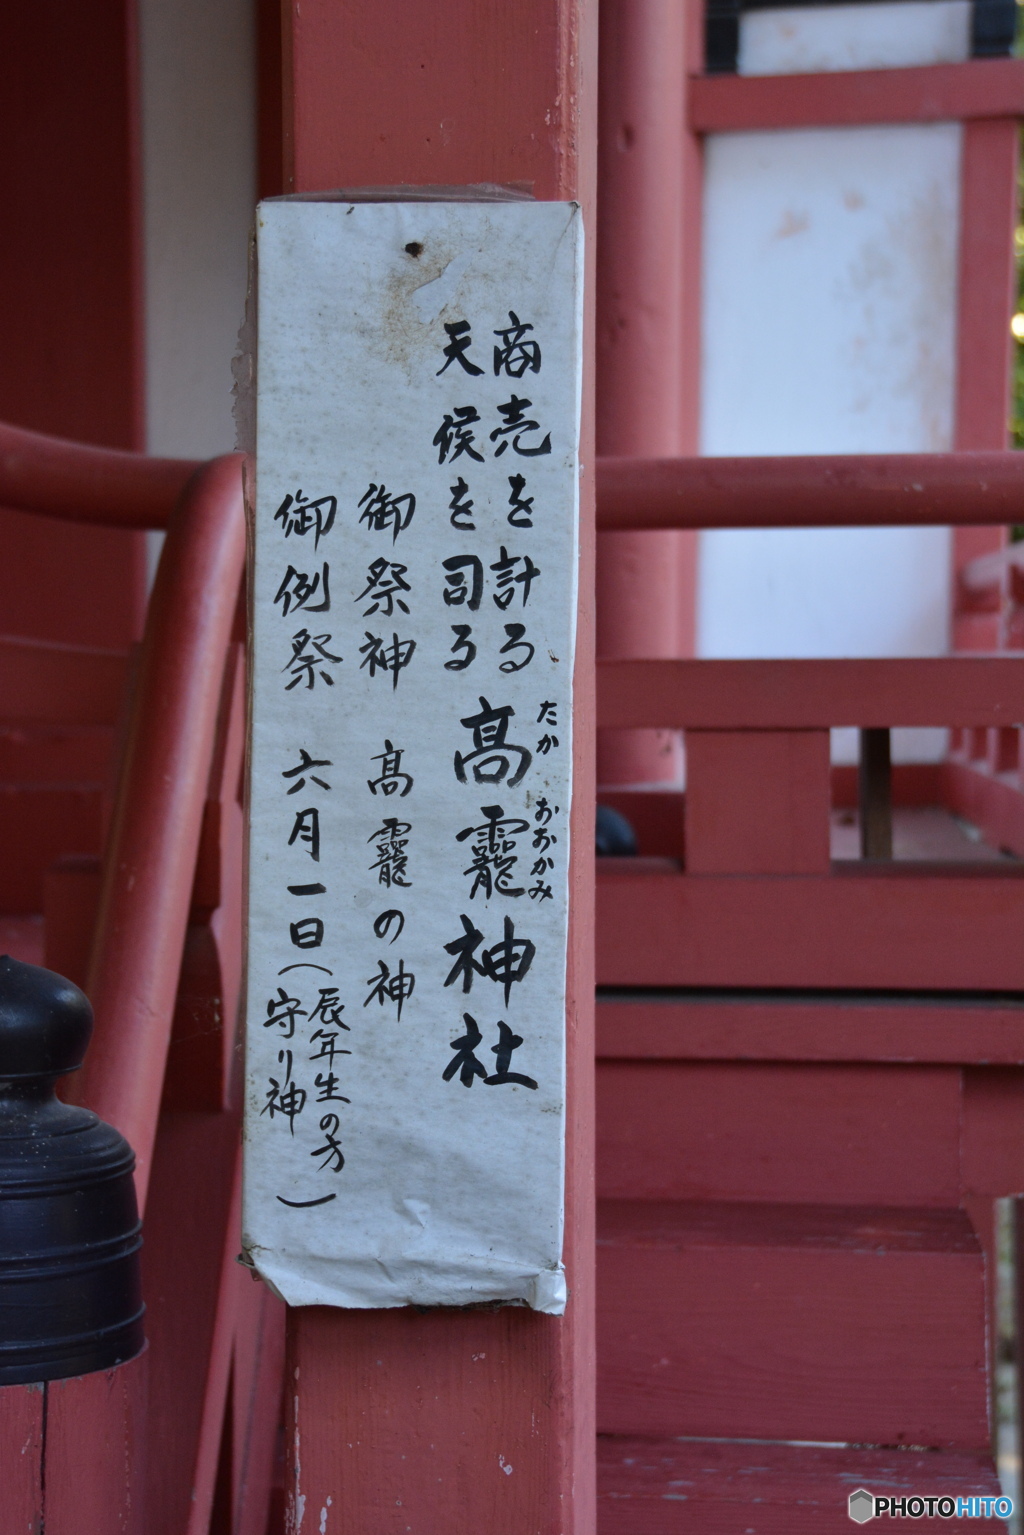 商売を計る
天候を司る
髙龗神社
たか おおかみ
御祭神 髙龗の神
御例祭 六月一日(辰年生の方
守り神)
PHOTOHITO